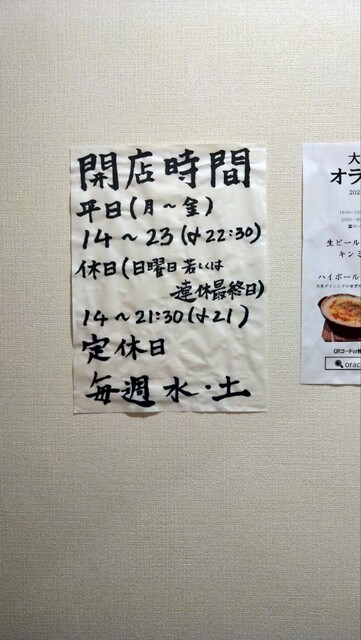 開店時間
平日(月～金)
14～23(〆22:30)
休日(日曜日若しくは
連休最終日)
14～21:30(〆21)
定休日
毎週水・土
大
オラ
202
生ビール
キンミ
ハイボール
QRコードor検
orac